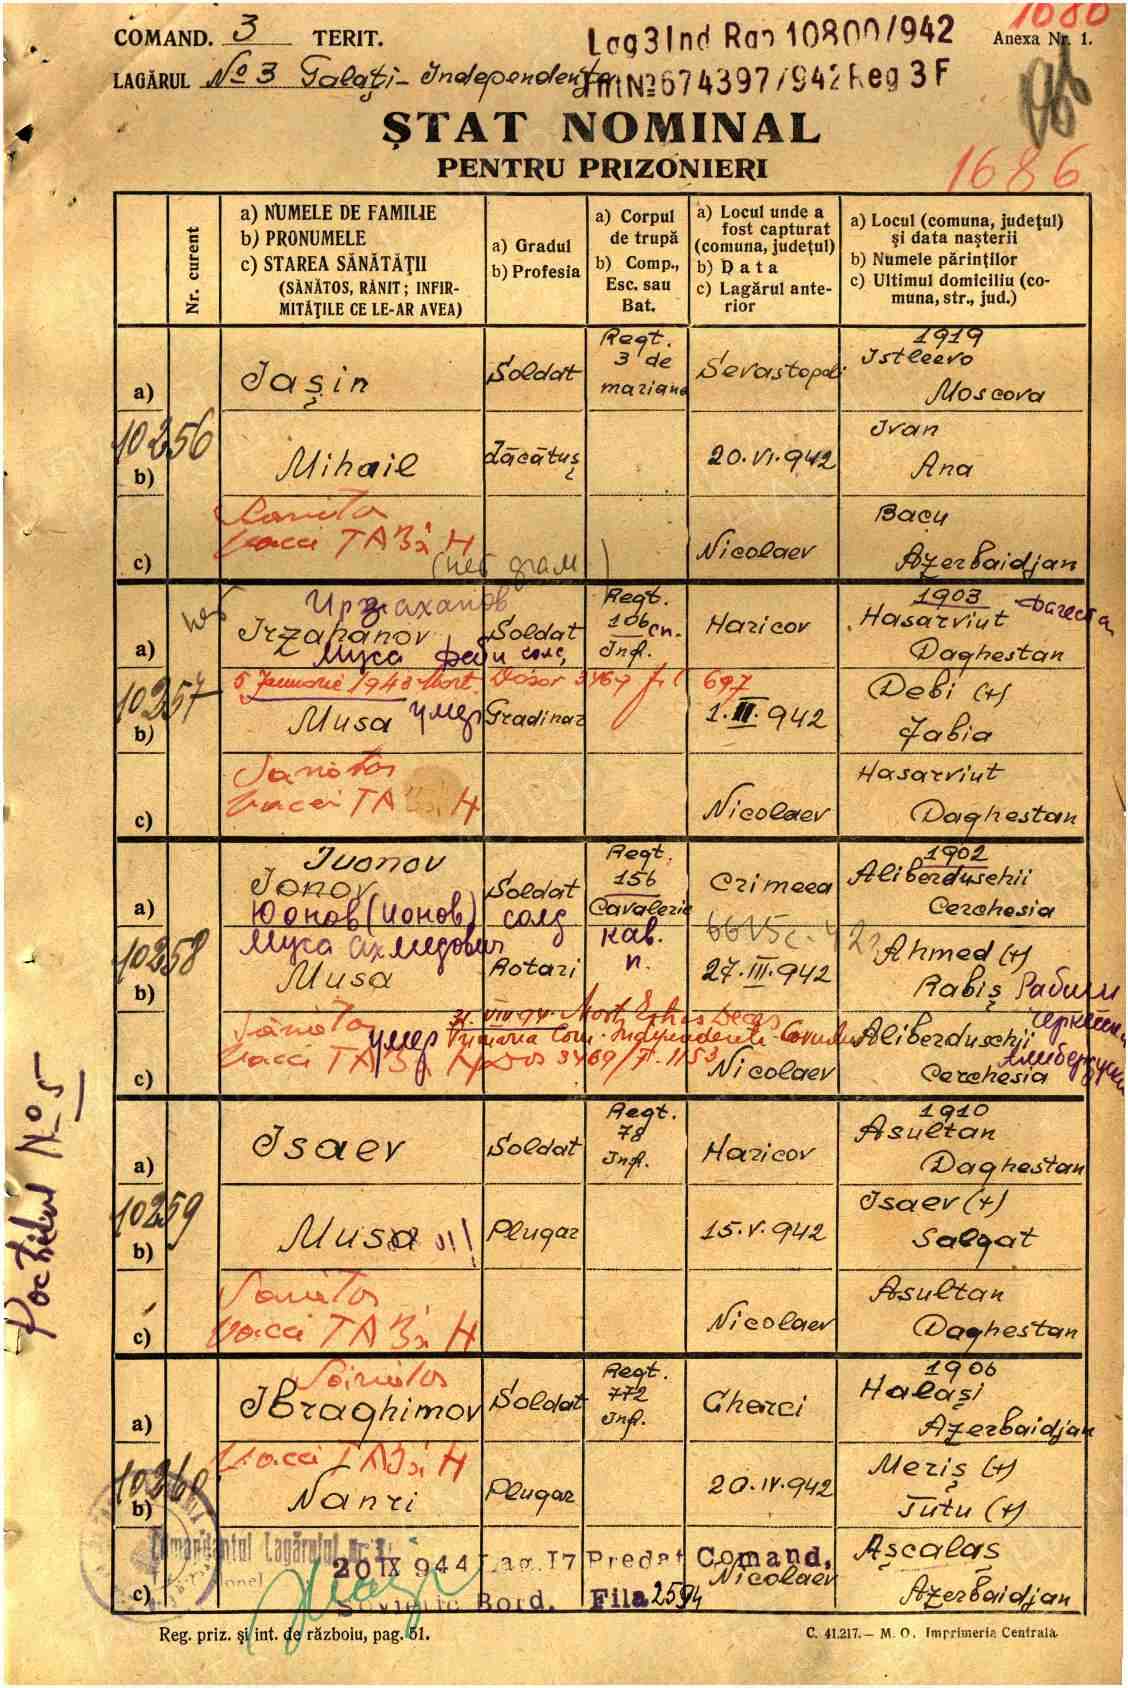 1686
COMAND. 3 TERIT.
Lag 3 Ind Rap 10800/942
Anexa Nr. 1.
LAGĂRUL No 3 Galaţi-Independenţa
Int No 674397/942 Reg 3 F
ŞTAT NOMINAL
PENTRU PRIZONIERI
1686
Nr. curent
a) NUMELE DE FAMILIE
b) PRONUMELE
c) STAREA SĂNĂTĂŢII
(SĂNĂTOS, RĂNIT ; INFIR-
MITĂŢILE CE LE-AR AVEA)
a) Gradul
b) Profesia
a) Corpul
de trupă
b) Comp.,
Esc. sau
Bat.
a) Locul unde a
fost capturat
(comuna, judeţul)
b) Data
c) Lagărul ante-
rior
a) Locul (comuna, judeţul)
şi data naşterii
b) Numele părinţilor
c) Ultimul domiciliu (co-
muna, str., jud.)
10256
a) Iaşin
Soldat
Regt.
3 de
mariana
Sevastopoli
1919
Istleevo
Moscova
b) Mihail
Lăcătuş
20.VI.942
Ivan
Ana
c) Sanatos
Vacci TAB 3x H
Nicolaev
Bacu
Azerbaidjan
(неб грам)
10257
Ирзаханов
a) Irzahanov
Муса Феби солд,
Soldat
Regt.
106 сп.
Inf.
Haricov
1903
Hasarviut
Daghestan
5 Januarie 1943 Mort. Dosar 3469 f. 697
b) Musa умер
Gradinar
1.III.942
Debi (+)
Jabia
c) Sanatos
Vacci TAB 3x H
Nicolaev
Hasarviut
Daghestan
10258
Iuonov
a) Ionov
Юонов (Ионов) солд
Soldat
Regt.
156
Cavalerie
кав.
п.
Crimeea
1902
Aliberduschii
Cerchesia
Муса Ахмедович
b) Musa
Rotari
27.III.942
Ahmed (+)
Rabiş Рабиш
c) Sănătos
умер
Vacci TAB 3x H
Dos 3469/f. 1153
Nicolaev
Aliberduschii
Cerchesia
10259
a) Isaev
Soldat
Regt.
78
Inf.
Haricov
1910
Asultan
Daghestan
b) Musa
Plugar
15.V.942
Isaev (+)
Salgat
c) Sanatos
Vacci TAB 3x H
Nicolaev
Asultan
Daghestan
10260
Sănătos
a) Ibraghimov
Soldat
Regt.
772
Inf.
Cherci
1906
Halaşi
Azerbaidjan
Vacci TAB 3x H
b) Nanri
Plugar
20.IV.942
Meriş (+)
Tutu (+)
c) Nicolaev
Aşcalaş
Azerbaidjan
Comandantul Lagărului Nr. 3
20 IX 944 Lag. 17 Predat Comand.
Sovietic Bord. Fila 2594
Reg. priz. şi int. de războiu, pag. 51.
C. 41.217.— M. O. Imprimeria Centrala